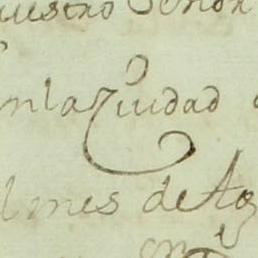 nuestro Señor
en la Ciudad
el mes de Ag